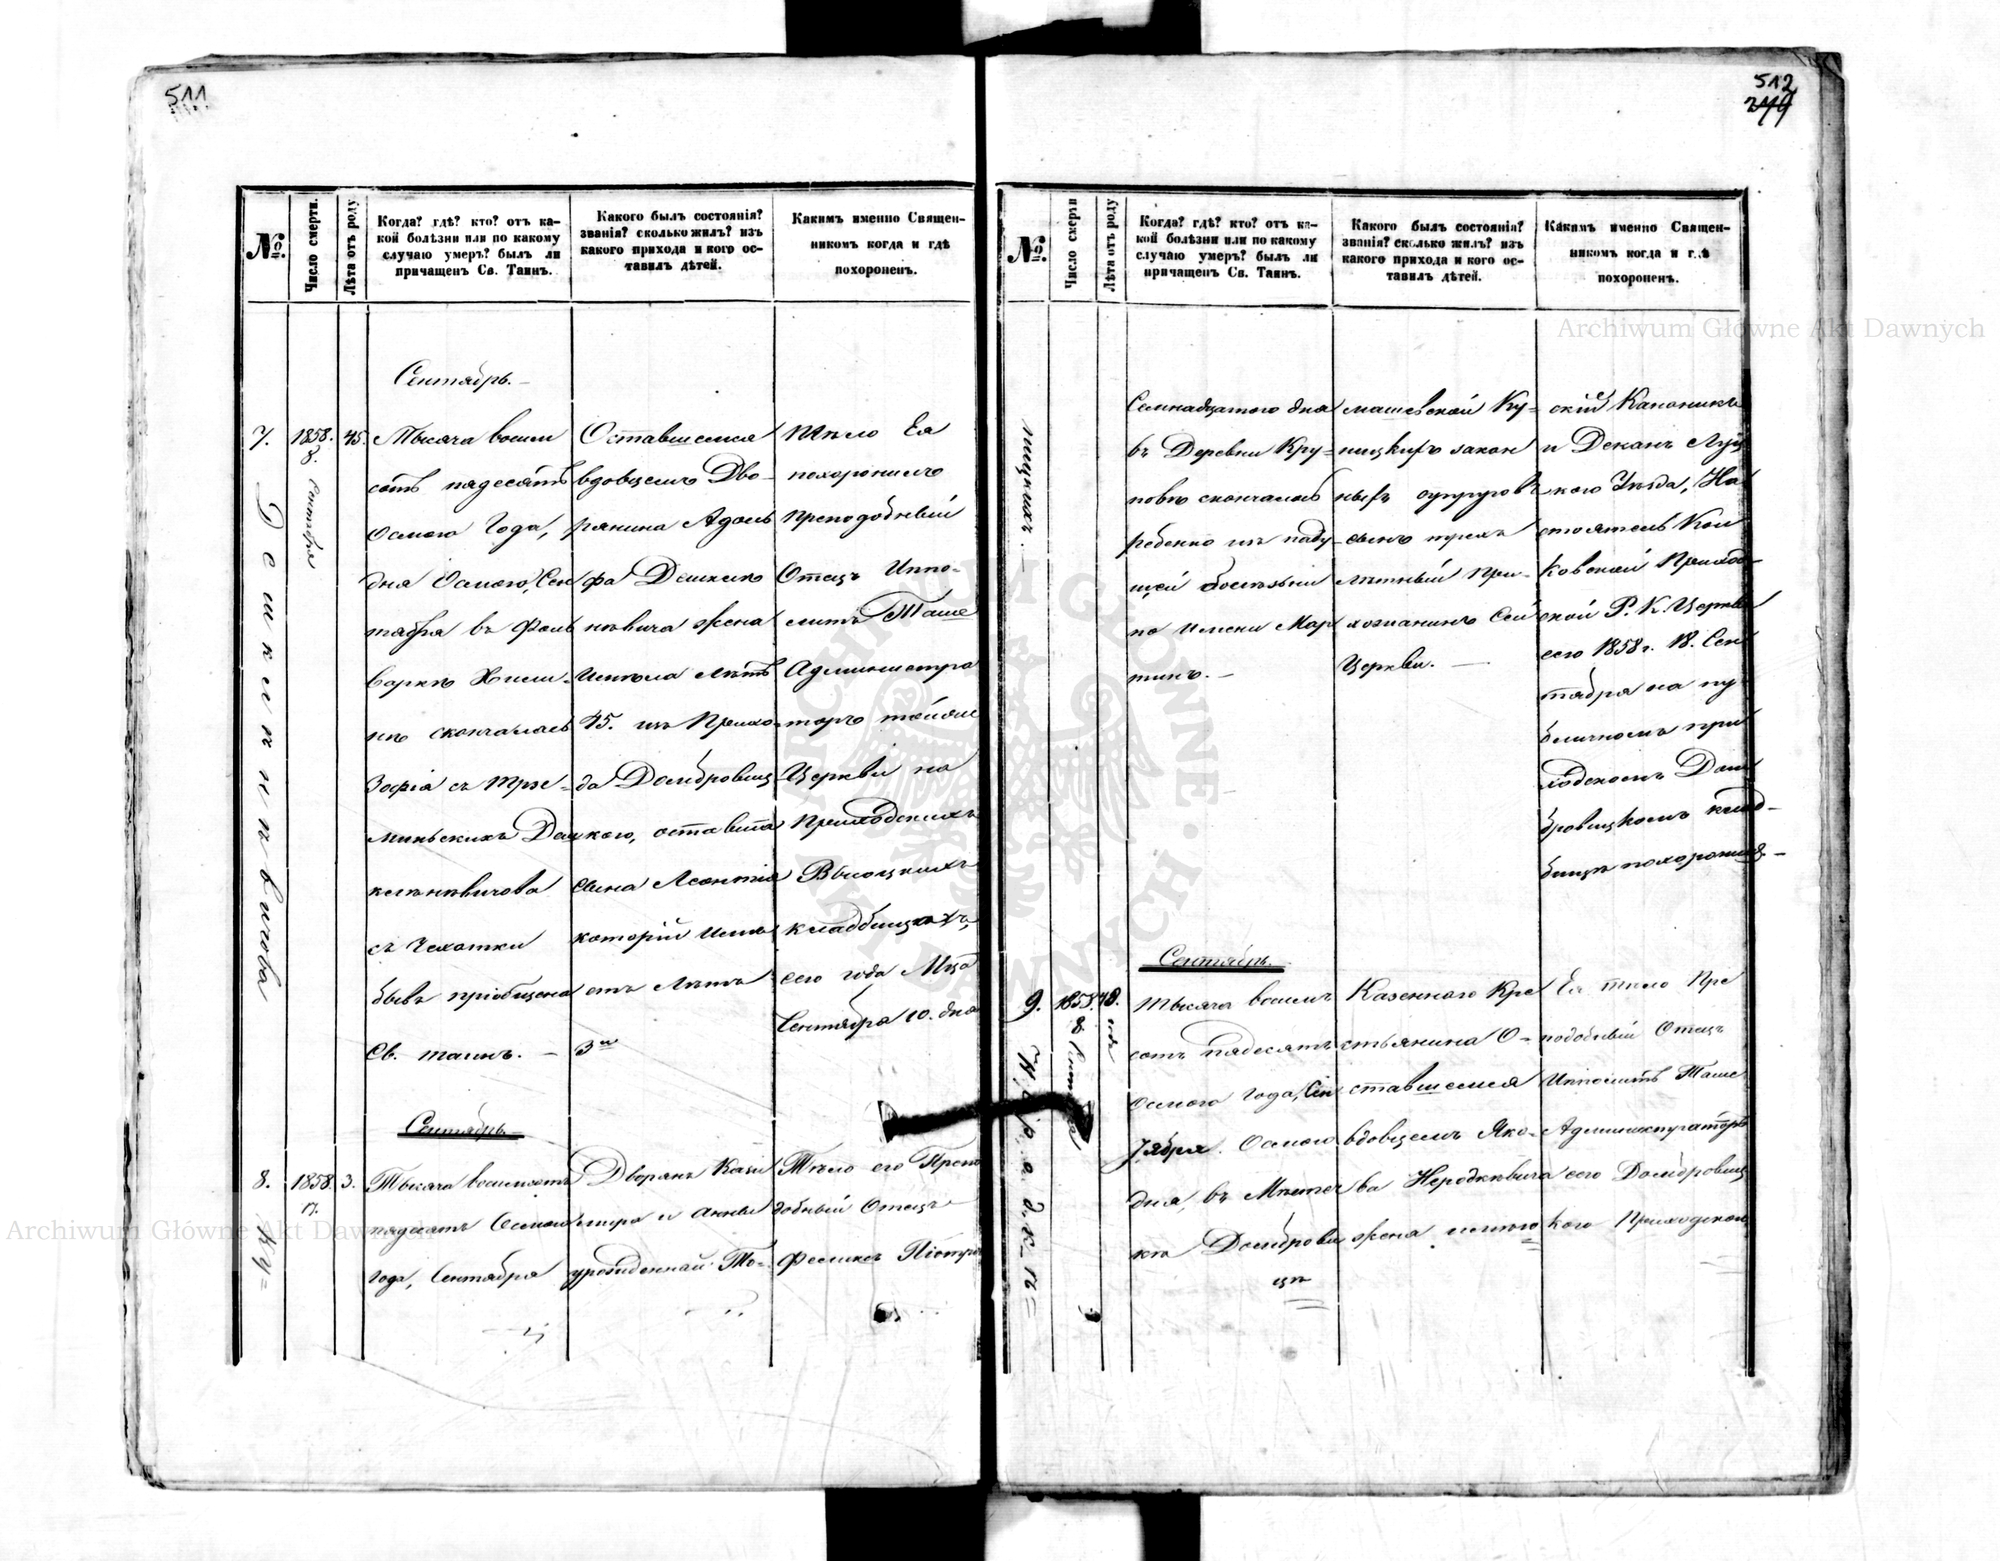 511
№.
Число смерти.
Лѣта отъ роду
Когда? гдѣ? кто? отъ ка-
кой болѣзни или по какому
случаю умеръ? былъ ли
причащенъ Св. Таинъ.
Какого былъ состоянія?
званія? сколько жилъ? изъ
какого прихода и кого ос-
тавилъ дѣтей.
Какимъ именно Священ-
никомъ когда и гдѣ
похороненъ.
Сентябрь.
7.
1858.
8.
Сентября
45.
Тысяча восем
сотъ пядесятъ
осмого Года,
дня Осмого, Сен
тября въ Фоль
варкѣ
скончалась
Зофія съ
съ Чехотки
бывъ пріобщена
Св. таинъ. —
Оставшемся
вдовцемъ Дво-
рянина Адоль
фа
жена
Имѣла лѣтъ
45. изъ Прихо-
да Домбровиц
кого, оставила
сына Леонтія
который имѣ
етъ лѣтъ
3и
Тѣло Ея
похоронилъ
Преподобный
Отецъ Иппо-
литъ Таше
Администра
торъ тойже
Церкви на
Приходскихъ
Высоцкихъ
кладбищахъ,
сего года Мца
Сентября 10. дня
Сентябрь
8.
1858
17.
3.
Ку=
Тысяча восемсотъ
пядесятъ Осмого
года, Сентября
Дворянъ Кази
мира и Анны
урожденной То-
Тѣло его Препо
добный Отецъ
Феликсъ Піотро
512
279
№.
Число смерти
Лѣта отъ роду
Когда? гдѣ? кто? отъ ка-
кой болѣзни или по какому
случаю умеръ? былъ ли
причащенъ Св. Таинъ.
Какого былъ состоянія?
званія? сколько жилъ? изъ
какого прихода и кого ос-
тавилъ дѣтей.
Какимъ именно Священ-
никомъ когда и гдѣ
похороненъ.
ницкихъ. —
Семнадцатого дня
въ Деревни Кру-
повѣ скончалось
ребенко изъ паду-
щей болѣзни
по имени Мар
тинъ. —
машевской Ку-
ницкихъ закон
ныхъ супруговъ
сынъ трехъ
лѣтный при-
хожанинъ Сей
Церкви. —
скій Каноникъ
и Деканъ Луц
кого Уѣзда, На
стоятель Кол
ковской Приход-
ской Р. К. Церкви
сего 1858 г. 18. Сен
тября на пу
бличномъ при
ходскомъ Дом
бровицкомъ клад-
бищѣ похоронилъ. —
Сентябрь.
9.
1858
8
48.
Тысяча восемъ
сотъ пядесятъ
Осмого года, Сен
тября Осмого
дня, въ Мѣстеч
кѣ Домброви
цѣ
Казенного Кре
стьянина О-
ставшемся
вдовцемъ Яко-
ва Неродкевича
жена
Ея тѣло Пре
подобный Отецъ
Ипполитъ Таше
Администраторъ
сего Домбровиц
кого Приходской
Archiwum Główne Akt Dawnych
Archiwum Główne Akt Dawnych
ARCHIWUM GŁÓWNE · AKT DAWNYCH ·